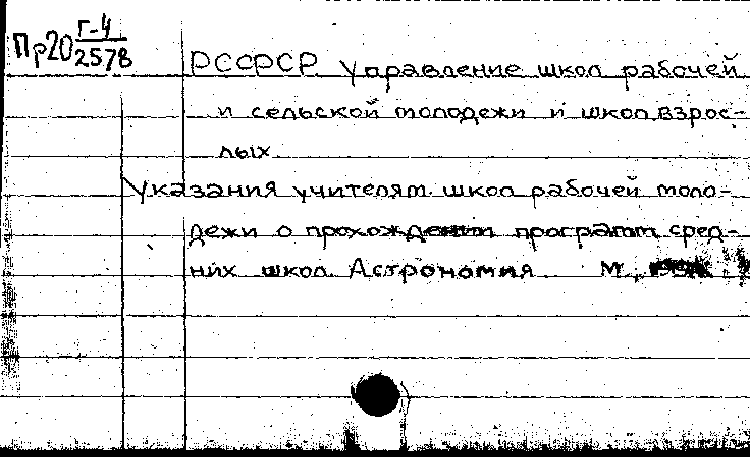 Пр20 Г-4
2578
РСФСР. Управление школ рабочей
и сельской молодежи и школ взрос-
лых.
Указания учителям школ рабочей моло-
дежи о прохождении программ сред-
них школ. Астрономия. М.,